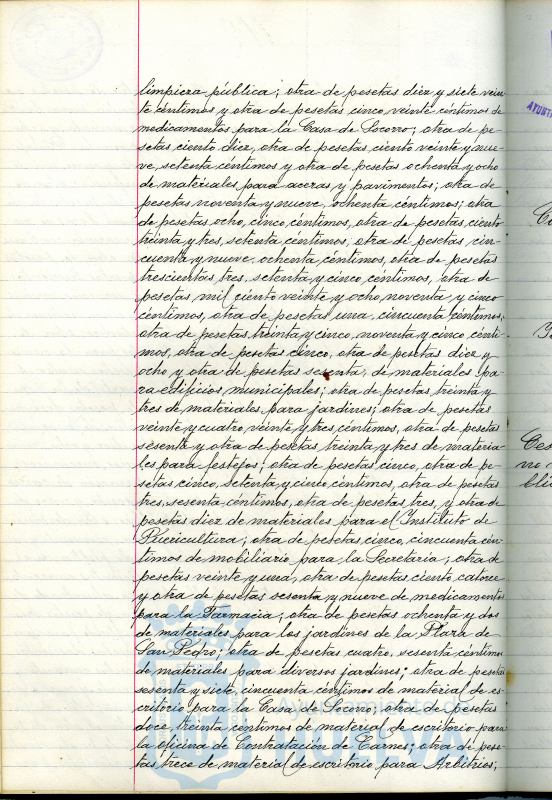 limpieza pública; otra de pesetas diez y siete vein-
te céntimos y otra de pesetas cinco, veinte céntimos de
medicamentos para la Casa de Socorro; otra de pe-
setas ciento diez, otra de pesetas ciento veinte y nue-
ve, setenta céntimos y otra de pesetas ochenta y ocho
de materiales para aceras y pavimentos; otra de
pesetas noventa y nueve, ochenta céntimos; otra
de pesetas ocho, cinco céntimos, otra de pesetas ciento
treinta y tres, setenta céntimos, otra de pesetas cin-
cuenta y nueve, ochenta céntimos, otra de pesetas
trescientas tres, setenta y cinco céntimos, otra de
pesetas mil ciento veinte y ocho, noventa y cinco
céntimos, otra de pesetas una, cincuenta céntimos,
otra de pesetas treinta y cinco, noventa y cinco cénti-
mos, otra de pesetas cinco, otra de pesetas diez y
ocho y otra de pesetas sesenta, de materiales pa-
ra edificios municipales; otra de pesetas treinta y
tres de materiales para jardines; otra de pesetas
veinte y cuatro, veinte y tres céntimos, otra de pesetas
sesenta y otra de pesetas treinta y tres de materia-
les para festejos; otra de pesetas cinco, otra de pe-
setas cinco, setenta y cinco céntimos, otra de pesetas
tres, sesenta céntimos, otra de pesetas tres, y otra de
pesetas diez de materiales para el Instituto de
Puericultura; otra de pesetas cinco, cincuenta cén-
timos de mobiliario para la Secretaría; otra de
pesetas veinte y una, otra de pesetas ciento catorce
y otra de pesetas sesenta y nueve de medicamentos
para la Farmacia; otra de pesetas ochenta y dos
de materiales para los jardines de la Plaza de
San Pedro; otra de pesetas cuatro, sesenta céntimos
de materiales para diversos jardines; otra de pesetas
sesenta y siete, cincuenta céntimos de material de es-
critorio para la Casa de Socorro; otra de pesetas
doce, treinta céntimos de material de escritorio para
la oficina de Contratación de Carnes; otra de pese-
tas trece de material de escritorio para Arbitrios;